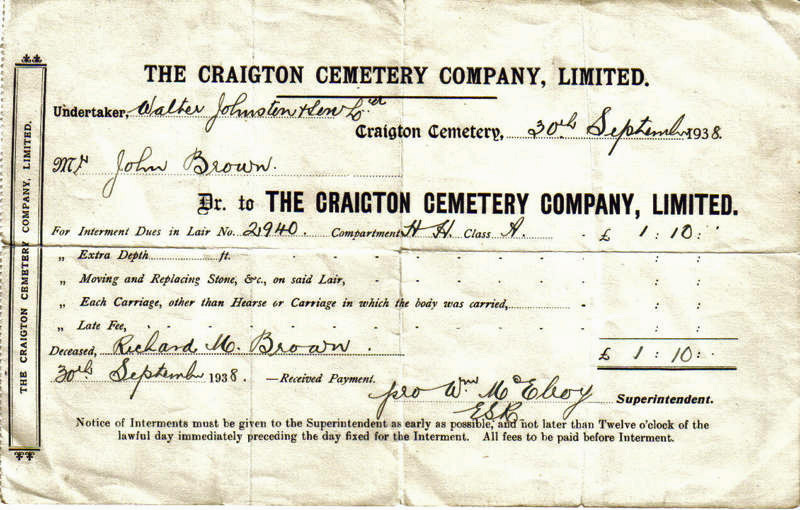 THE CRAIGTON CEMETERY COMPANY, LIMITED.
THE CRAIGTON CEMETERY COMPANY, LIMITED.
Undertaker, Walter Johnston & Son Ld
Craigton Cemetery, 30th September 1938.
Mr John Brown.
Dr. to THE CRAIGTON CEMETERY COMPANY, LIMITED.
For Interment Dues in Lair No. 2,940. Compartment H H. Class A. - £ 1 : 10 :
„ Extra Depth ft.
„ Moving and Replacing Stone, &c., on said Lair,
„ Each Carriage, other than Hearse or Carriage in which the body was carried,
„ Late Fee,
Deceased, Richard M. Brown. £ 1 : 10 :
30th September 1938. —Received Payment.
pro Wm McElroy Superintendent.
ESK
Notice of Interments must be given to the Superintendent as early as possible, and not later than Twelve o'clock of the
lawful day immediately preceding the day fixed for the Interment. All fees to be paid before Interment.